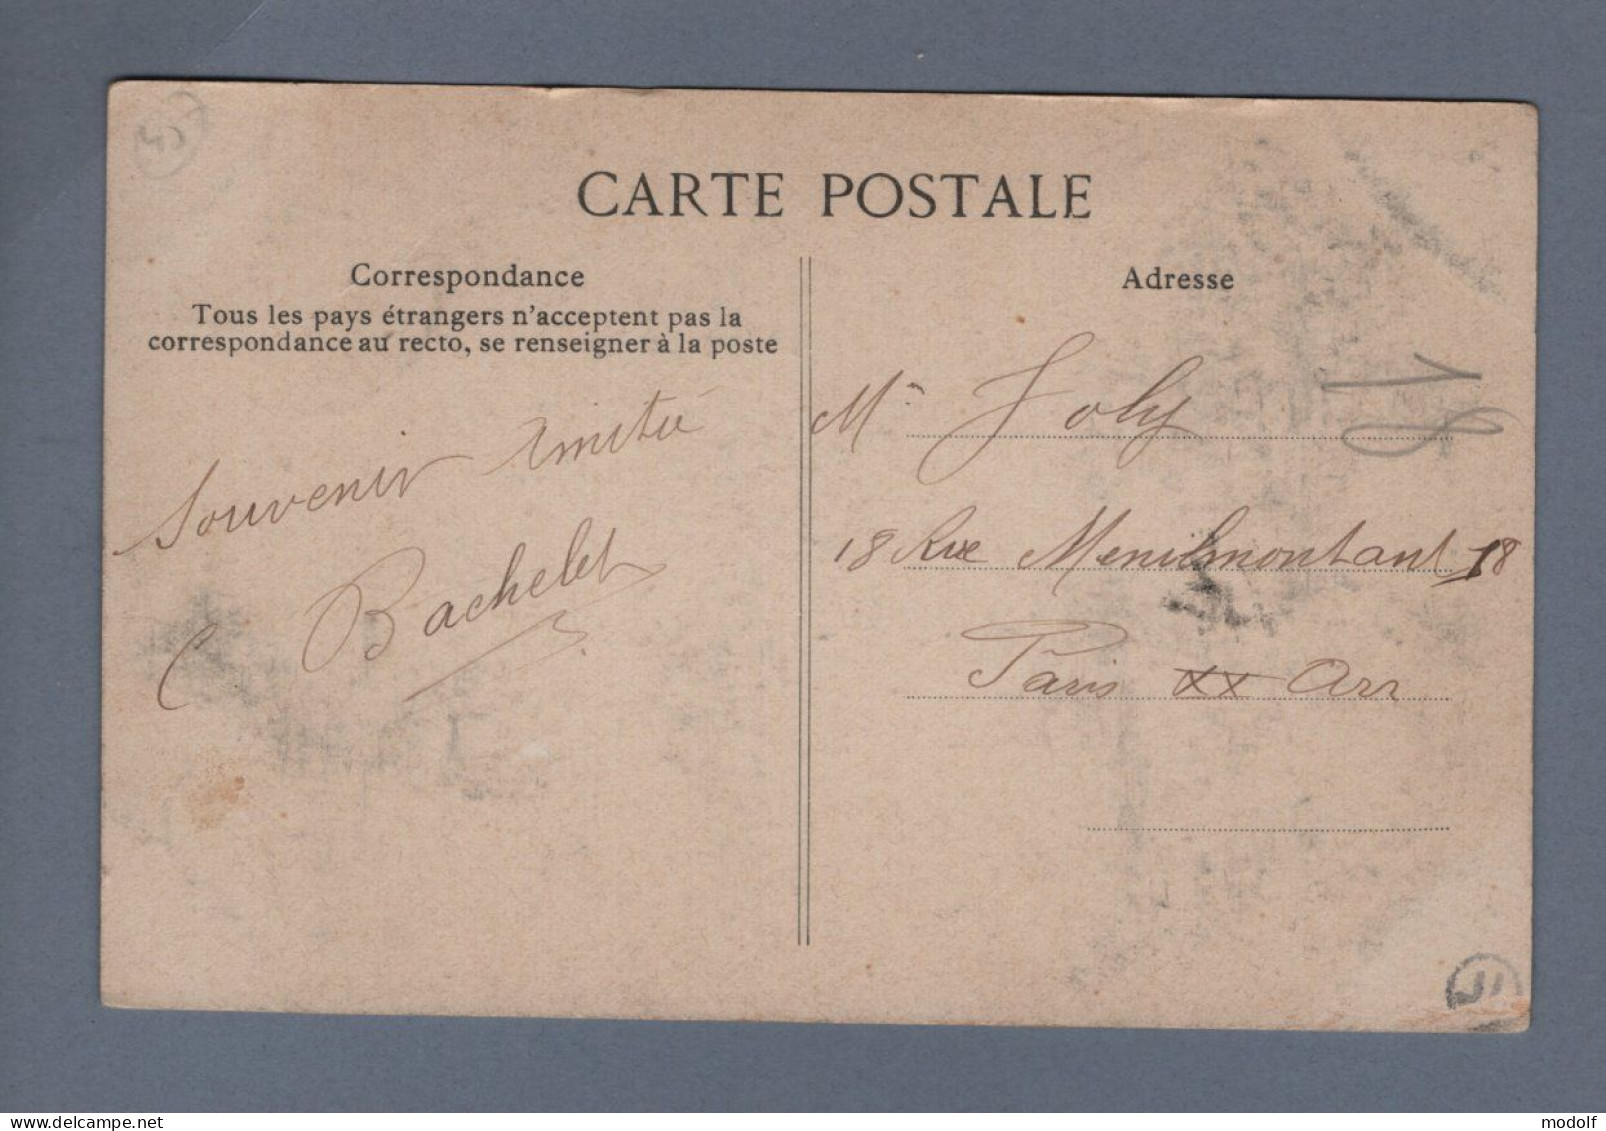 CARTE POSTALE
Correspondance
Tous les pays étrangers n'acceptent pas la
correspondance au recto, se renseigner à la poste
Souvenir Amitié
C Bachelet
Adresse
Mr Joly
18 Rue Menilmontant 18
Paris XX Arr
18
modolf